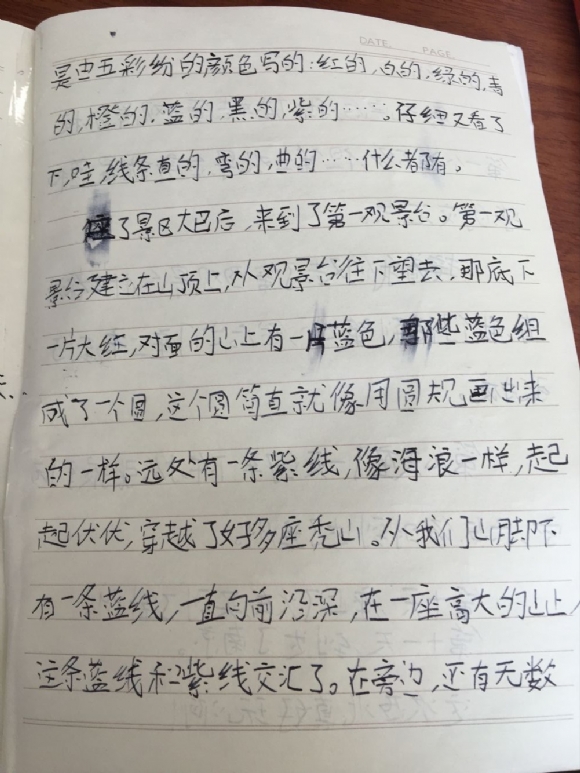 DATE PAGE
是由五彩纷的颜色写的:红的,白的,绿的,青
的,橙的,蓝的,黑的,紫的……。仔细又看了
下,哇,线条直的,弯的,曲的……什么都有。
了景区大巴后,来到了第一观景台。第一观
景台建立在山顶上,从观景台往下望去,那底下
一片大红,对面的山上有一片蓝色,那些蓝色组
成了一个圆,这个圆简直就像用圆规画出来
的一样。远处有一条紫线,像海浪一样,起
起伏伏,穿越了好多座秃山。从我们山脚下
有一条蓝线,一直向前沿深,在一座高大的山上,
这条蓝线和紫线交汇了。在旁边,还有无数